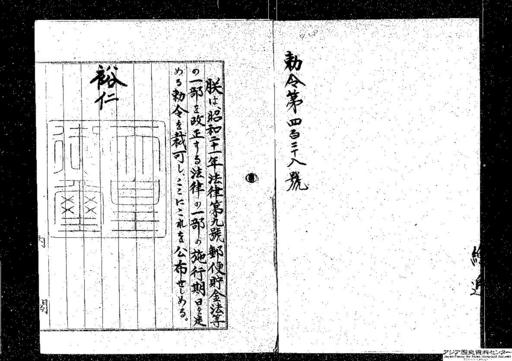 勅令第四百三十八號
朕は、昭和二十一年法律第九號郵便貯金法等
の一部を改正する法律の一部の施行期日を定
める勅令を裁可し、ここにこれを公布せしめる。
裕仁
天皇
御璽
内閣
アジア歴史資料センター
Japan Center for Asian Historical Records